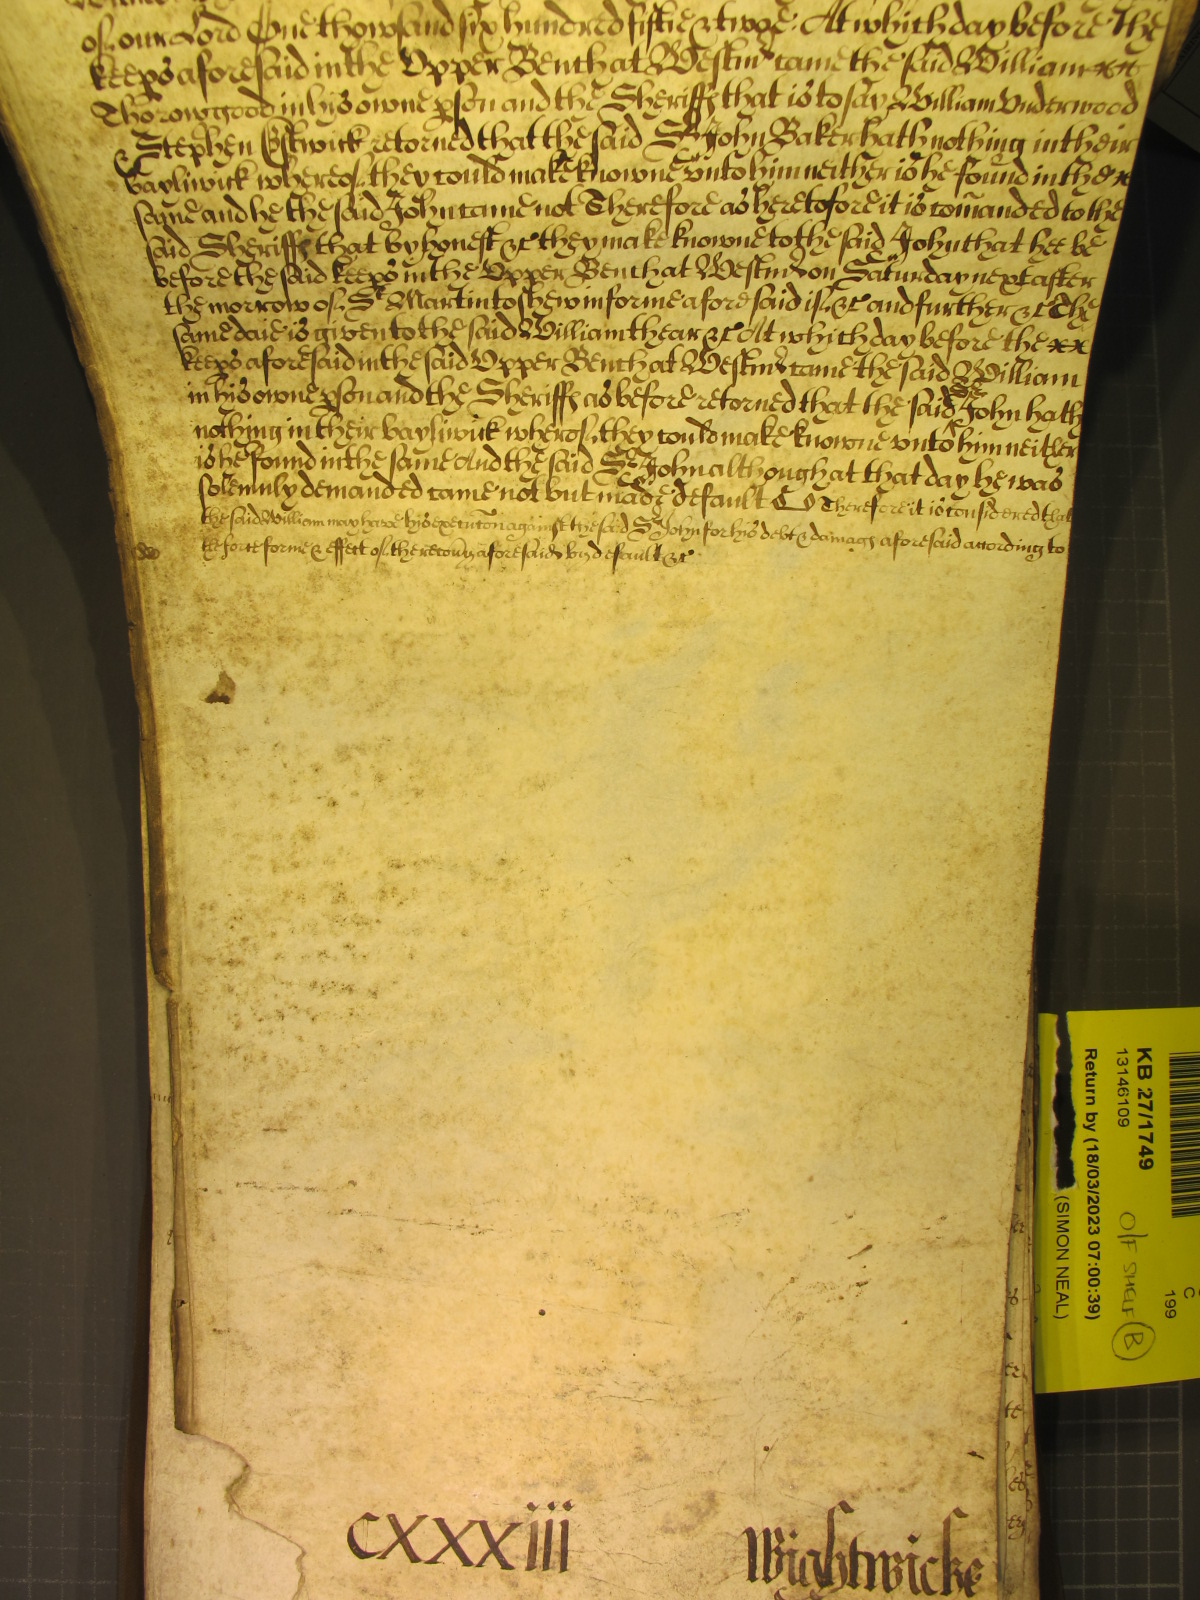 of our Lord One thowsand six hundred fiftie & twoe. At which day before the
keeps aforesaid in the Upper Bench at Westmr came the said William
Thorowgood in his owne pson and the Sheriffs that is to say William Underwood
& Stephen Estwick retorned that the said Sr John Baker hath nothing in their
bayliwick whereof they could make knowne unto him neither is he found in the
same and he the said John came not Therefore as heretofore it is comanded to the
said Sheriffs that by honest &c they make knowne to the said John that hee be
before the said keeps in the Upper Bench at Westmr on Saturday next after
the morrow of St Martin to shew in forme aforesaid if &c and further &c The
same daie is given to the said William thear &c At which day before the xx
keeps aforesaid in the said Upper Bench at Westmr came the said William
in his owne pson and the Sheriffs as before retorned that the said Sr John hath
nothing in their bayliwick wherof they could make knowne unto him neither
is he found in the same And the said Sr John although at that day he was
solemnly demanded came not but made default Therefore it is considered that
the said William may have his execution against the said Sr John for his debt & damags aforesaid according to
the force forme & effect of the recouy aforesaid by default &c
CXXXiii
Wightwicke
KB 27/1749
13146109
Return by (18/03/2023 07:00:39)
(SIMON NEAL)
O/F SHELF B
C
199